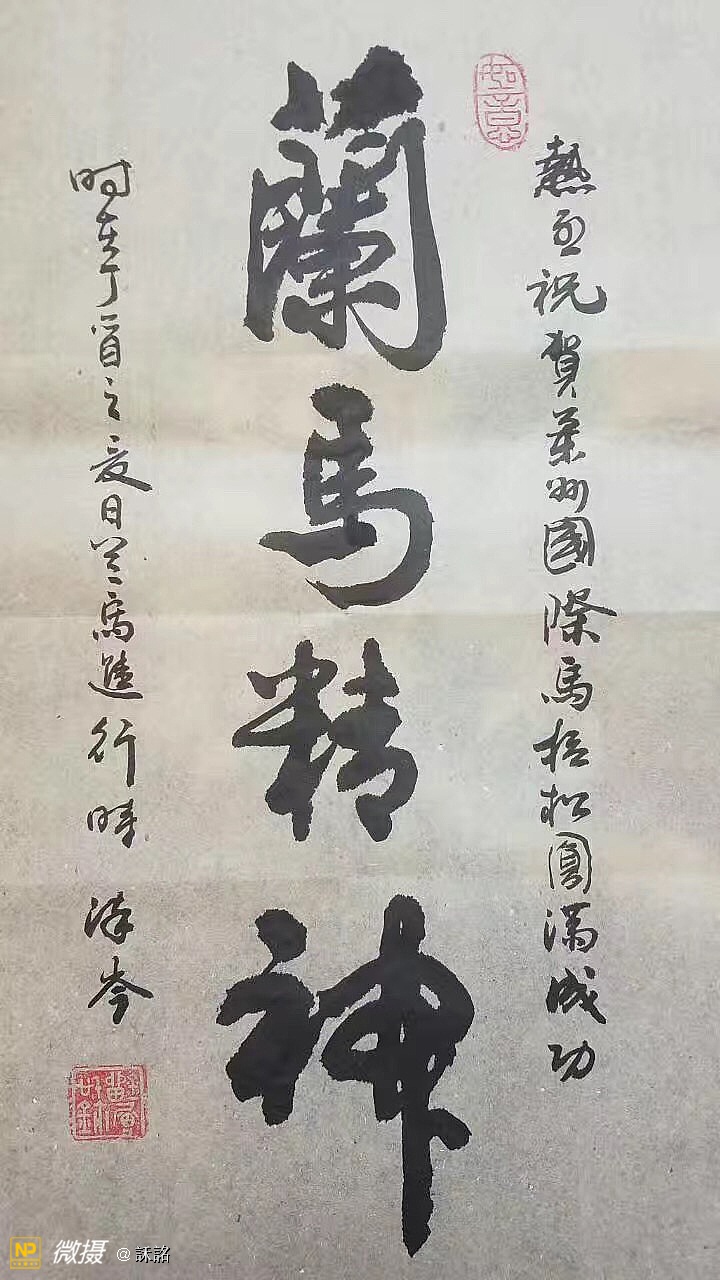 如意
熱烈祝賀蘭州國際馬拉松圓滿成功
蘭馬精神
时在丁酉之夏日兰馬進行時
NP 微摄 @